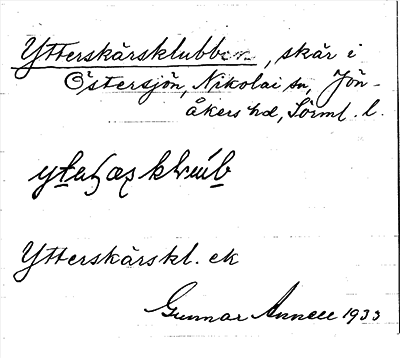 Ytterskärsklubben, skär i
Östersjön, Nikolai sn, Jön-
åkers hd, Sörml. l.
Ytterskärskl. ek
Gunnar Annell 1933